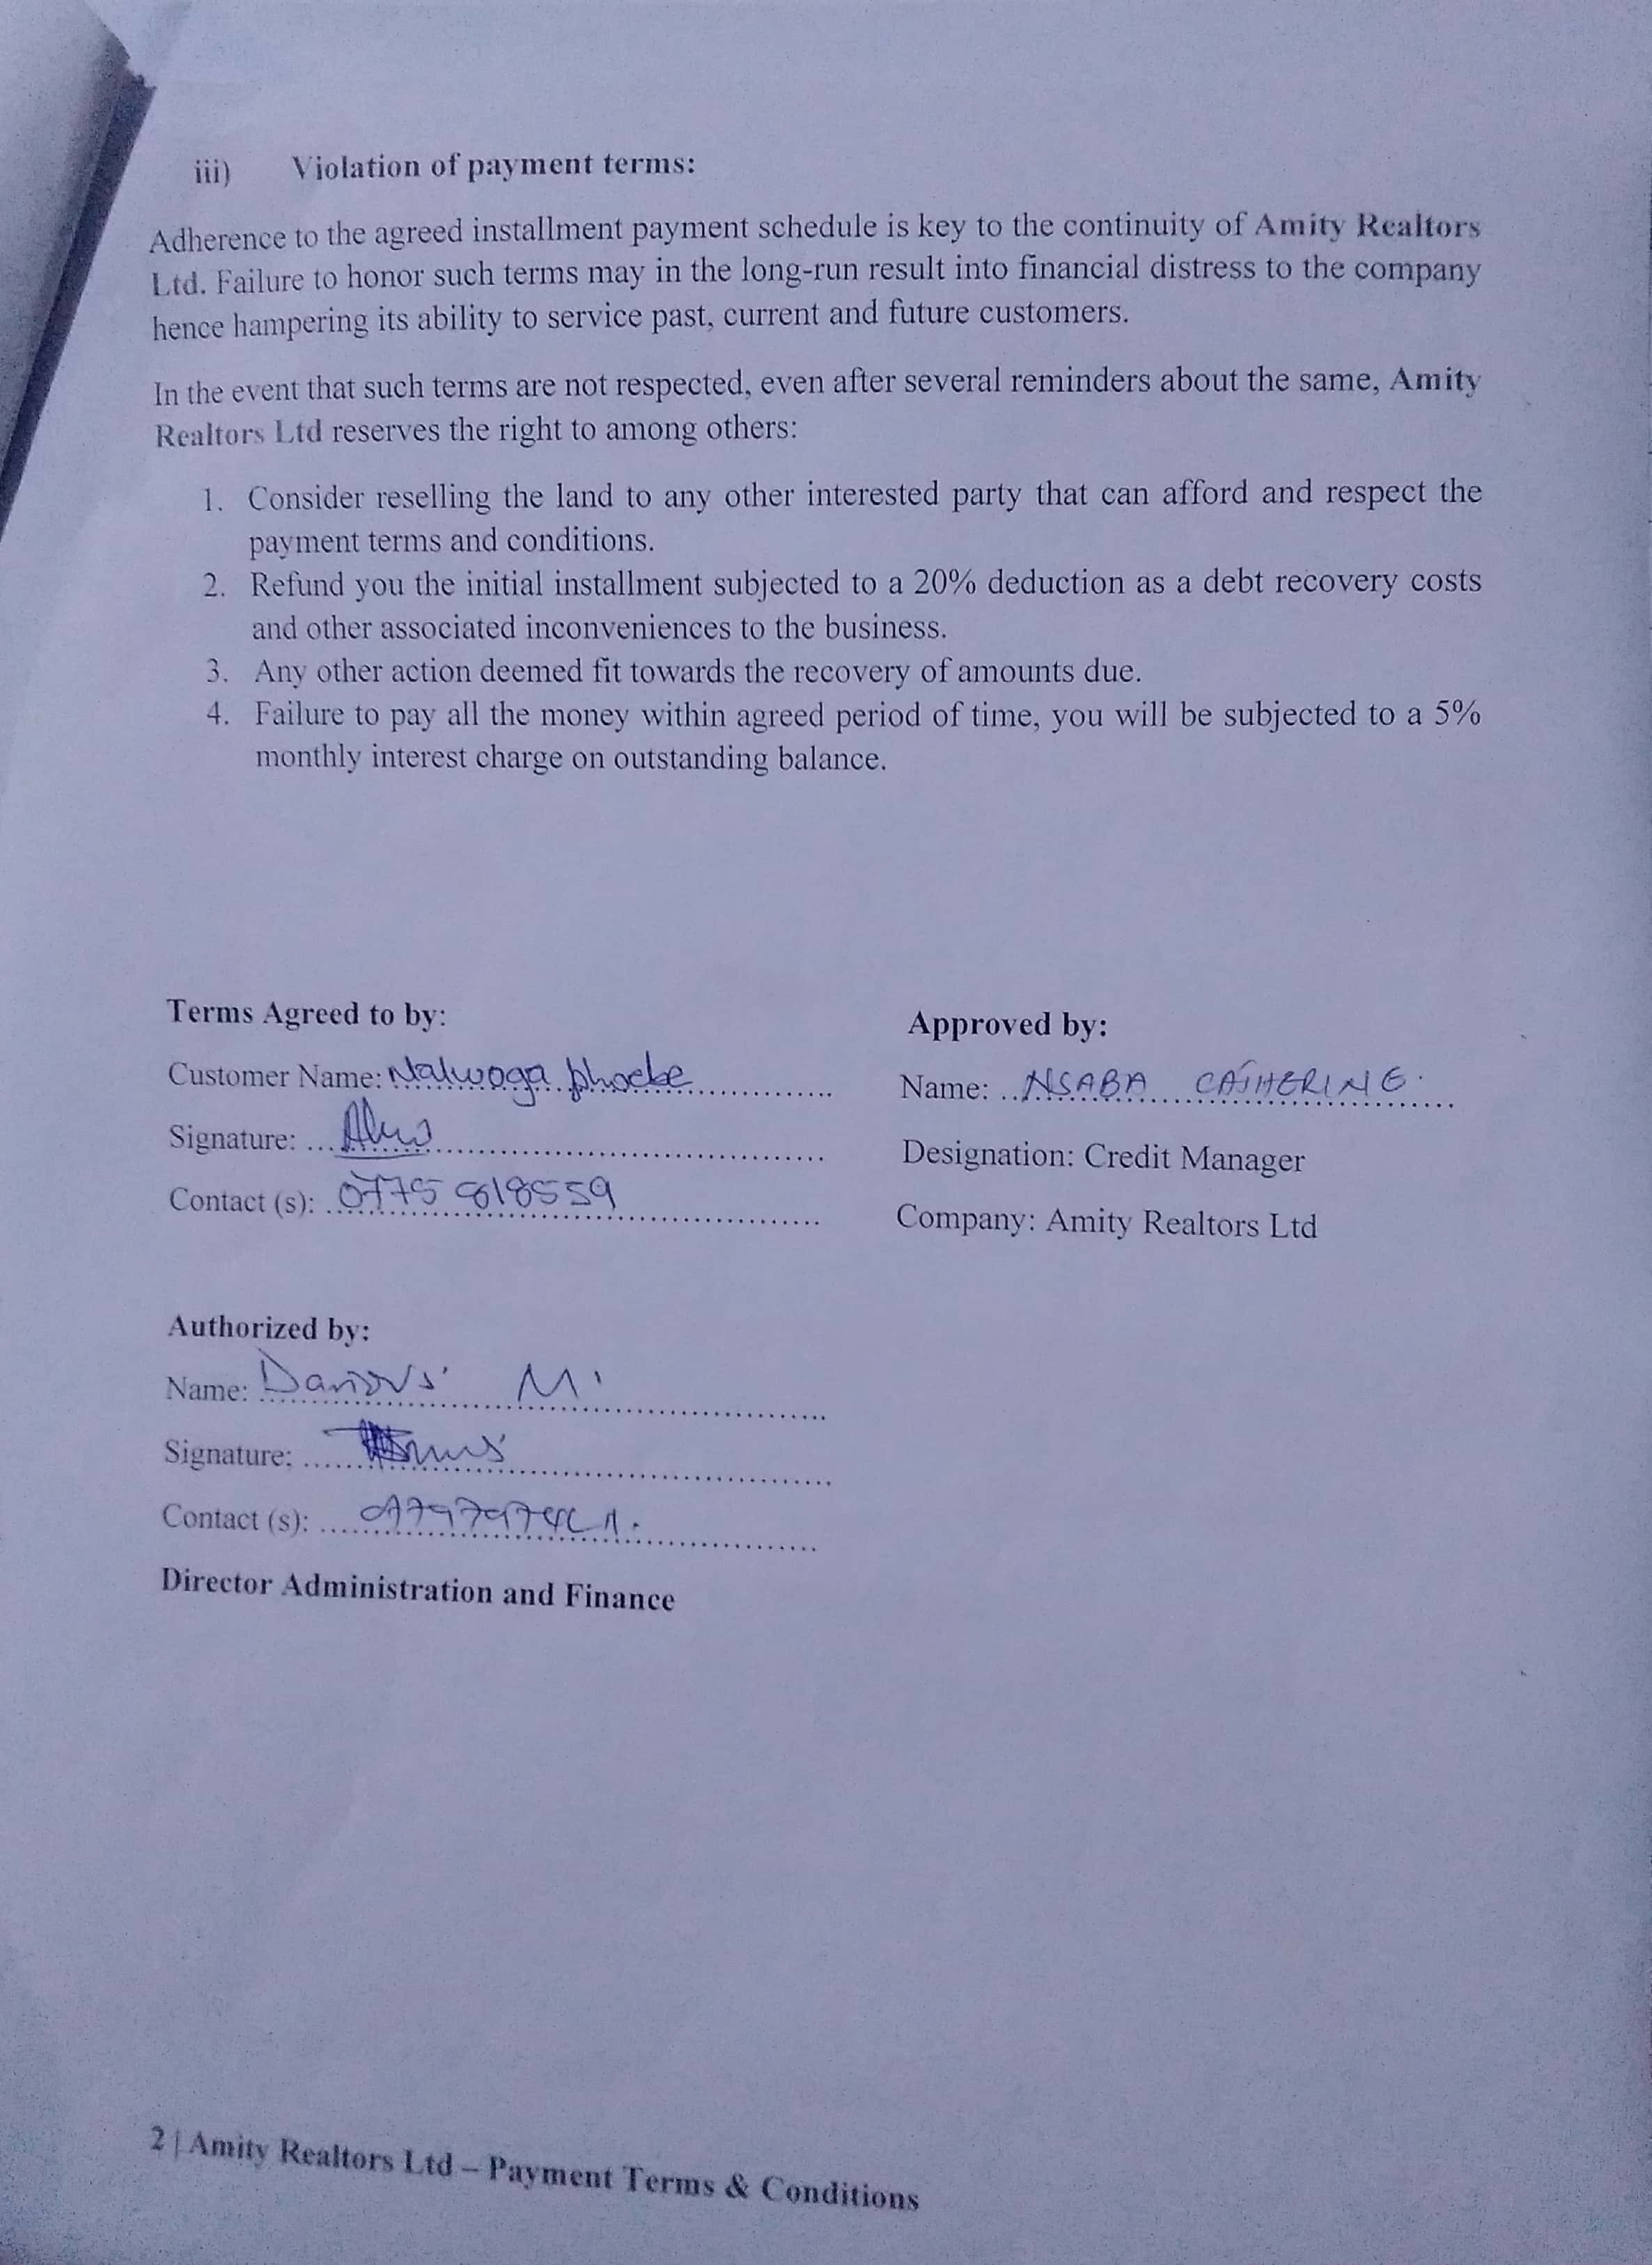 iii) Violation of payment terms:
Adherence to the agreed installment payment schedule is key to the continuity of Amity Realtors
Ltd. Failure to honor such terms may in the long-run result into financial distress to the company
hence hampering its ability to service past, current and future customers.
In the event that such terms are not respected, even after several reminders about the same, Amity
Realtors Ltd reserves the right to among others:
1. Consider reselling the land to any other interested party that can afford and respect the
payment terms and conditions.
2. Refund you the initial installment subjected to a 20% deduction as a debt recovery costs
and other associated inconveniences to the business.
3. Any other action deemed fit towards the recovery of amounts due.
4. Failure to pay all the money within agreed period of time, you will be subjected to a 5%
monthly interest charge on outstanding balance.
Terms Agreed to by:
Customer Name: Nalwoga phoebe
Signature:
Contact (s): 0775 818559
Approved by:
Name: NSABA CATHERINE.
Designation: Credit Manager
Company: Amity Realtors Ltd
Authorized by:
Name: M.
Signature:
Contact (s):
Director Administration and Finance
2 | Amity Realtors Ltd – Payment Terms & Conditions